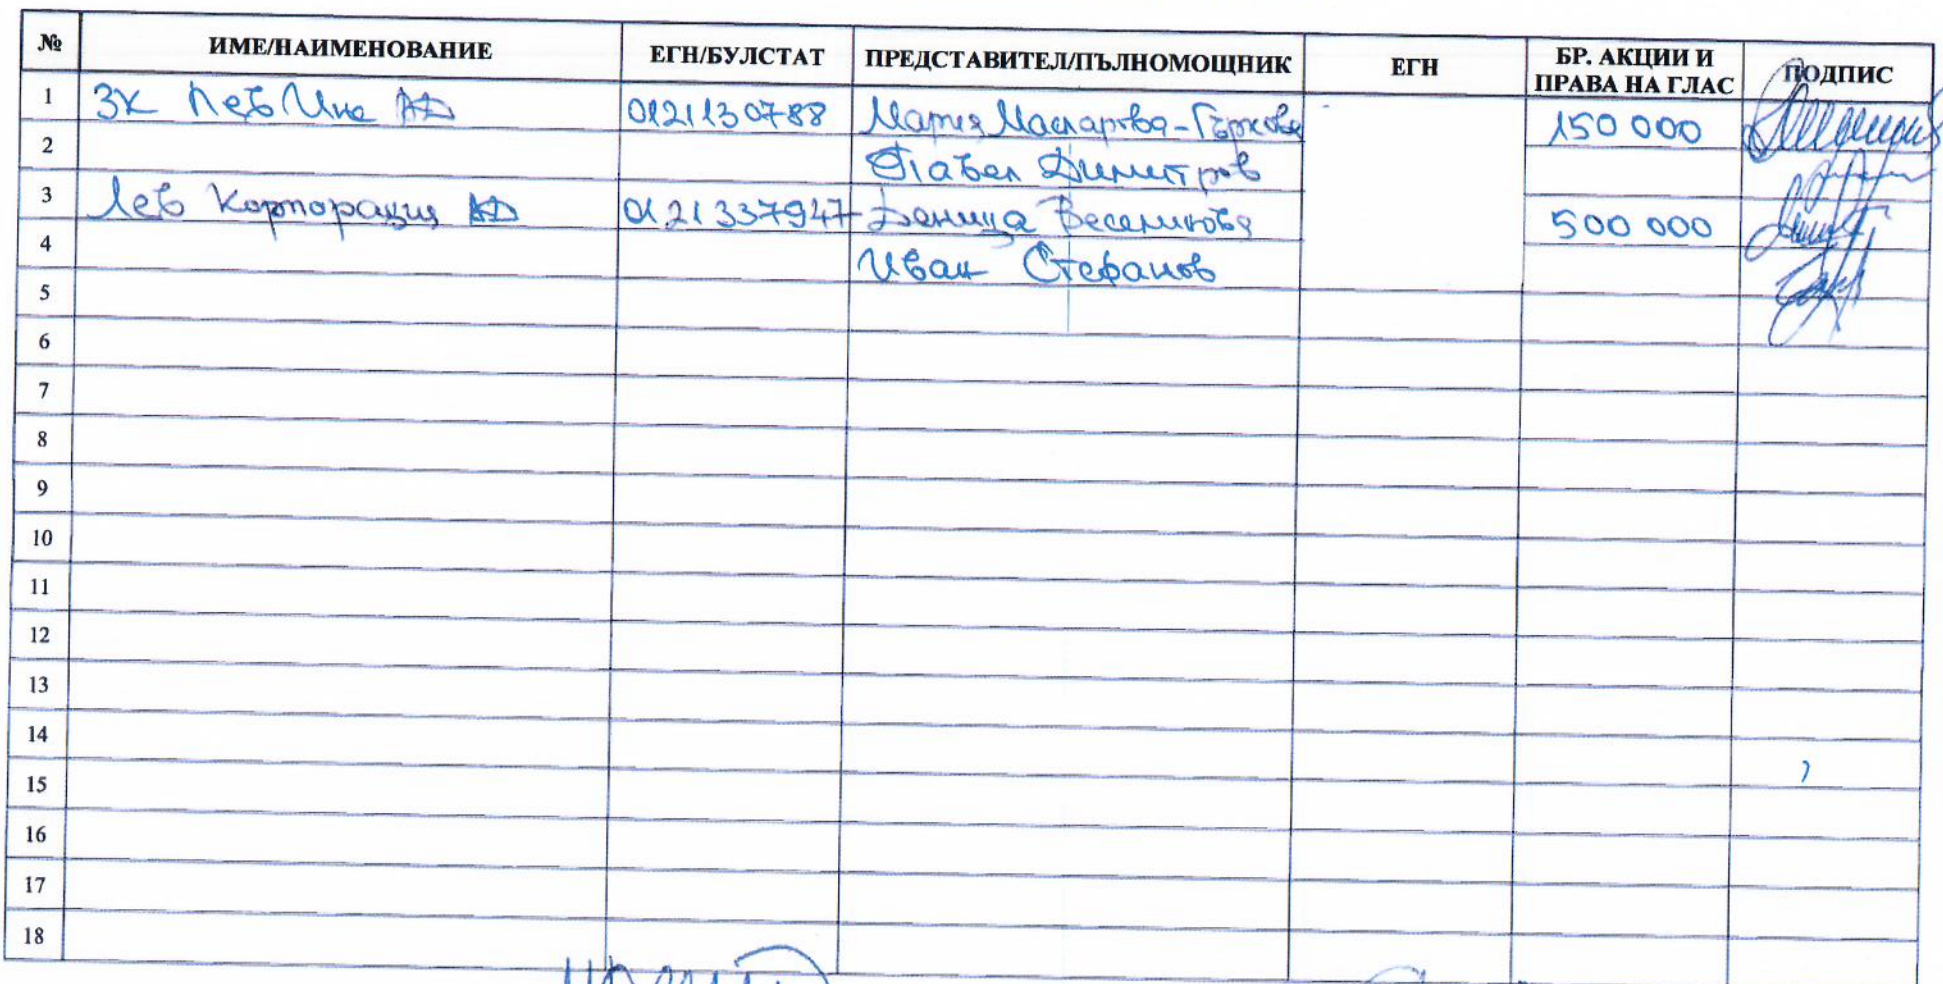 № ИМЕ/НАИМЕНОВАНИЕ ЕГН/БУЛСТАТ ПРЕДСТАВИТЕЛ/ПЪЛНОМОЩНИК ЕГН БР. АКЦИИ И ПРАВА НА ГЛАС ПОДПИС
1 ЗК Лев Инс АД 0121130788 Мария Масларова-Гъркова 150 000
2 Павел Димитров
3 Лев Корпорация АД 0121337947 Деница Веселинова 500 000
4 Иван Стефанов
5
6
7
8
9
10
11
12
13
14
15
16
17
18